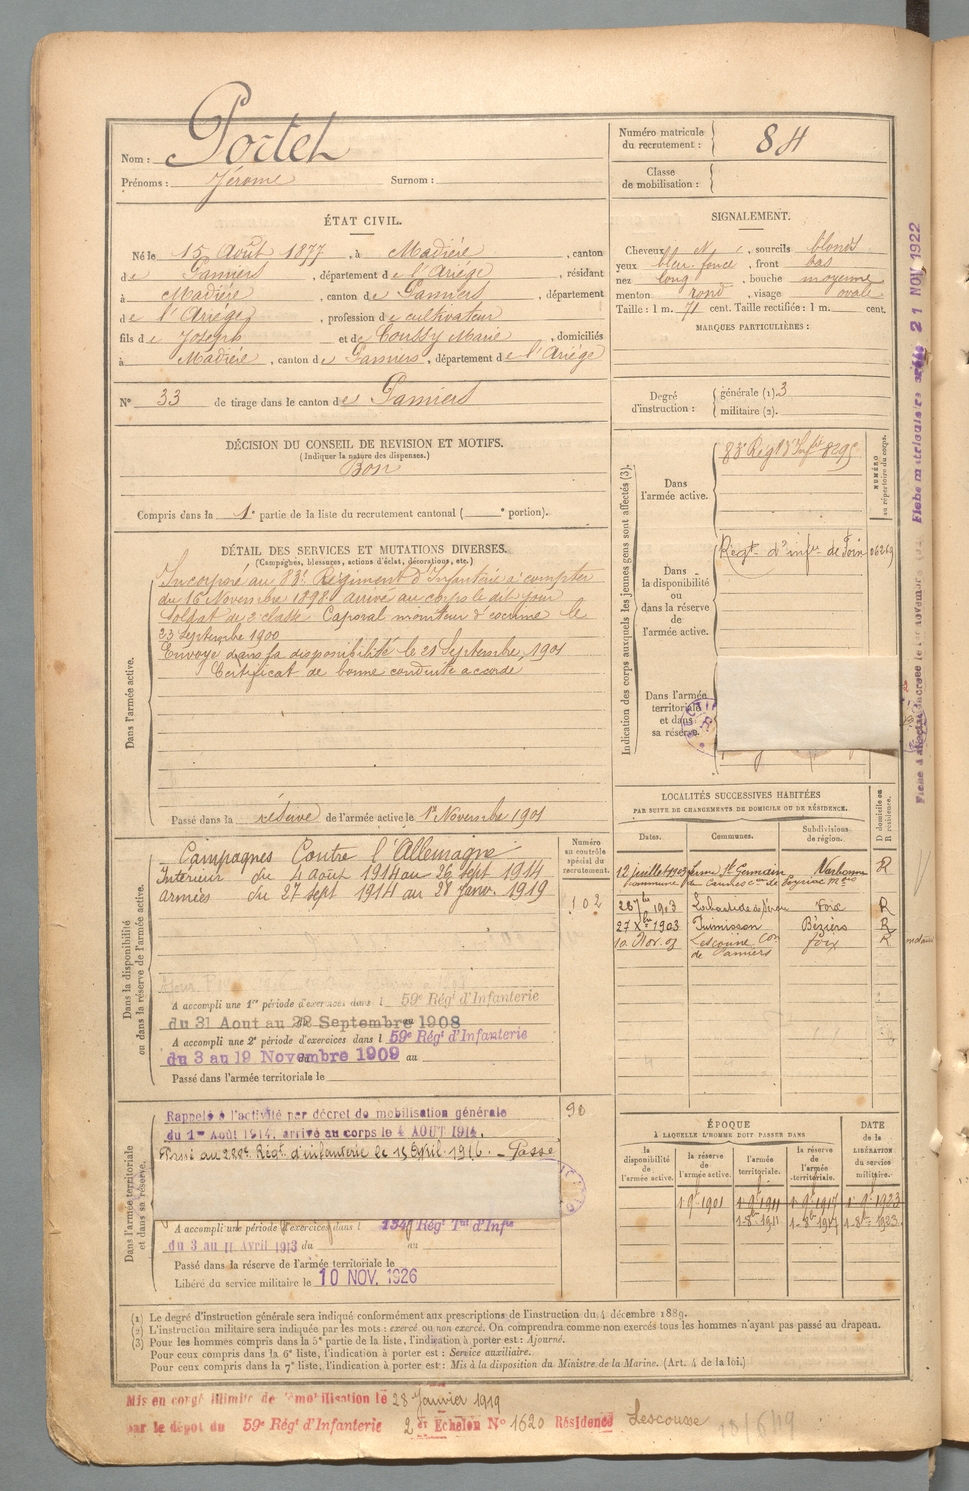 Nom : Portet
Prénoms : Jérome Surnom :
Numéro matricule du recrutement : 84
Classe de mobilisation :
ÉTAT CIVIL.
Né le 15 Août 1877, à Madière, canton
de Pamiers, département de l'Ariége, résidant
à Madière, canton de Pamiers, département
de l'Ariége, profession de cultivateur
fils de Joseph et de Coussy Marie, domiciliés
à Madière, canton de Pamiers, département de l'Ariége
N° 33 de tirage dans le canton de Pamiers
SIGNALEMENT.
Cheveux, sourcils blonds
yeux bleu foncé, front bas
nez long, bouche moyenne
menton rond, visage ovale
Taille : 1 m. 71 cent. Taille rectifiée : 1 m. cent.
MARQUES PARTICULIÈRES :
Degré d'instruction : générale (1). 3
militaire (2).
DÉCISION DU CONSEIL DE REVISION ET MOTIFS.
(Indiquer la nature des dispenses.)
Bon
Compris dans la 1e partie de la liste du recrutement cantonal ( e portion).
DÉTAIL DES SERVICES ET MUTATIONS DIVERSES.
(Campagnes, blessures, actions d'éclat, décorations, etc.)
Dans l'armée active.
Incorporé au 83e Régiment d'Infanterie à compter
du 16 Novembre 1898 arrivé au corps le dit jour
Soldat de 2e classe Caporal moniteur d'escrime le
23 Septembre 1900
Envoyé dans la disponibilité le 21 Septembre 1901
Certificat de bonne conduite accordé
Passé dans la réserve de l'armée active le 1er Novembre 1901
Indication des corps auxquels les jeunes gens sont affectés (3).
NUMÉRO au répertoire du corps.
Dans l'armée active.
83e Régt d'Infie 8295
Dans la disponibilité ou dans la réserve de l'armée active.
Régt d'infie de Foix
Dans l'armée territoriale et dans sa réserve.
Dans la disponibilité ou dans la réserve de l'armée active.
Campagnes Contre l'Allemagne
Intérieur du 4 août 1914 au 26 sept 1914
armées du 27 sept 1914 au 27 janv. 1919
Numéro au contrôle spécial du recrutement.
102
A accompli une 1re période d'exercices dans l 59e Régt d'Infanterie
du 31 Aout au Septembre 1908
A accompli une 2e période d'exercices dans l 59e Régt d'Infanterie
du 3 au 19 Novembre 1909 au
Passé dans l'armée territoriale le
LOCALITÉS SUCCESSIVES HABITÉES
PAR SUITE DE CHANGEMENTS DE DOMICILE OU DE RÉSIDENCE.
Dates. Communes. Subdivisions de région. D domicile ou R résidence.
12 juillet 1903 ferme St Germain Narbonne R
27 Xbre 1903 Puimisson Béziers R
10 Nov. Lescousse Con de Pamiers Foix R
Dans l'armée territoriale et dans sa réserve.
Rappelé à l'activité par décret de mobilisation générale
du 1er Août 1914, arrivé au corps le 4 AOUT 1914.
Passé au 288e Régt d'infanterie le 15 Avril 1916. - Passé
90
A accompli une période d'exercices dans l 134e Régt Tal d'Infie
du 3 au 11 Avril 1913 du au
Passé dans la réserve de l'armée territoriale le
Libéré du service militaire le 10 NOV. 1926
ÉPOQUE
À LAQUELLE L'HOMME DOIT PASSER DANS
la disponibilité de l'armée active. la réserve de l'armée active. l'armée territoriale. la réserve de l'armée territoriale.
DATE de la LIBÉRATION du service militaire.
(1) Le degré d'instruction générale sera indiqué conformément aux prescriptions de l'instruction du 4 décembre 1889.
(2) L'instruction militaire sera indiquée par les mots : exercé ou non exercé. On comprendra comme non exercés tous les hommes n'ayant pas passé au drapeau.
(3) Pour les hommes compris dans la 5e partie de la liste, l'indication à porter est : Ajourné.
Pour ceux compris dans la 6e liste, l'indication à porter est : Service auxiliaire.
Pour ceux compris dans la 7e liste, l'indication à porter est : Mis à la disposition du Ministre de la Marine. (Art. 4 de la loi.)
Mis en congé illimité de démobilisation le 28 Janvier 1919
par le dépôt du 59e Régt d'Infanterie 2e Echelon N° 1620 Résidence Lescousse
21 NOV 1922